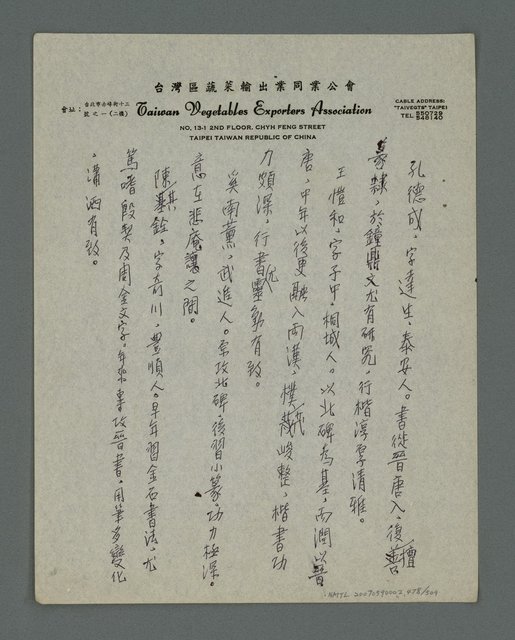 台灣區蔬菜輸出業同業公會
會址：台北市赤峰街十三號之一（二樓）
Taiwan Vegetables Exporters Association
CABLE ADDRESS:
"TAIVEGTS" TAIPEI
TEL 550729
NO. 13-1 2ND FLOOR, CHYH FENG STREET
TAIPEI TAIWAN REPUBLIC OF CHINA
孔德成，字達生，泰安人。書從晉唐入，後擅
篆隸，於鐘鼎文尤有研究，行楷淳厚清雅。
王愷和，字子中，桐城人。以北碑為基，而潤以晉
唐，中年以後更融入兩漢，樸茂峻整，楷書功
力頗深，行書尤靈動有致。
奚南薰，武進人。原攻北碑，後習小篆，功力極深。
意在悲庵讓之間。
陳其銓，字奇川，豐順人。早年習金石書法，尤
篤嗜殷契及周金文字。年來專攻晉書，用筆多變化
，瀟洒有致。
NMTL 20070590002 478/504